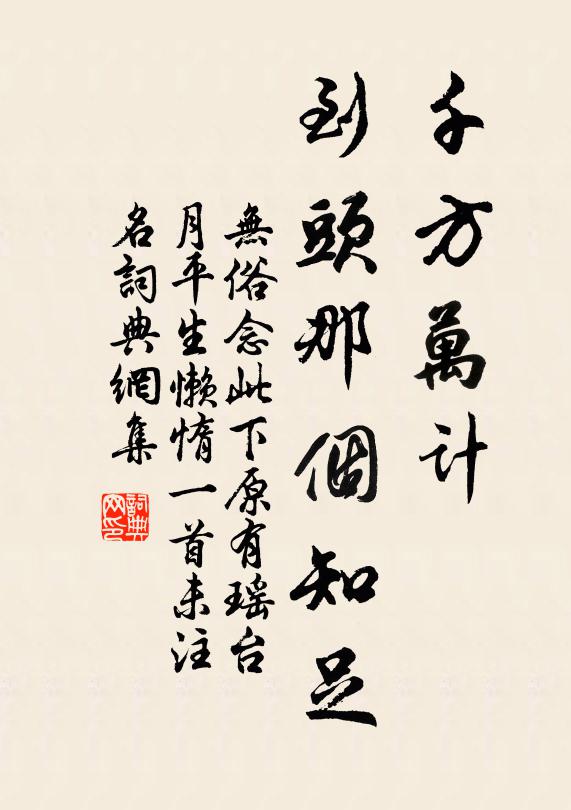 千方萬計
到頭那個知足
無俗念此下原有瑶台
月平生懒惰一首未注
名詞典網集
詞典
网印